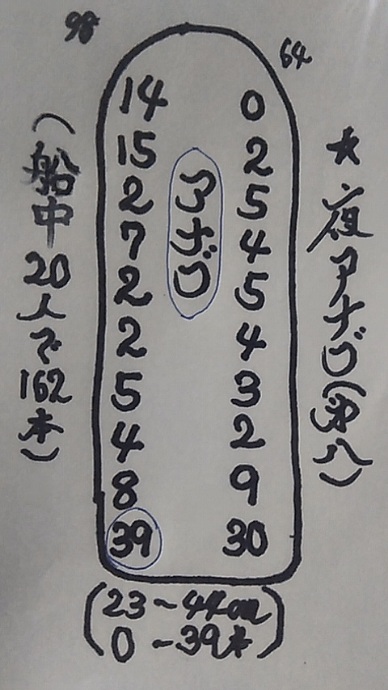 98
64
★夜アナゴ(第八)
アナゴ
14 0
15 2
2 5
7 4
2 5
2 4
5 3
4 2
8 9
39 30
(船中20人で162本)
(23~44cm
0-39本)